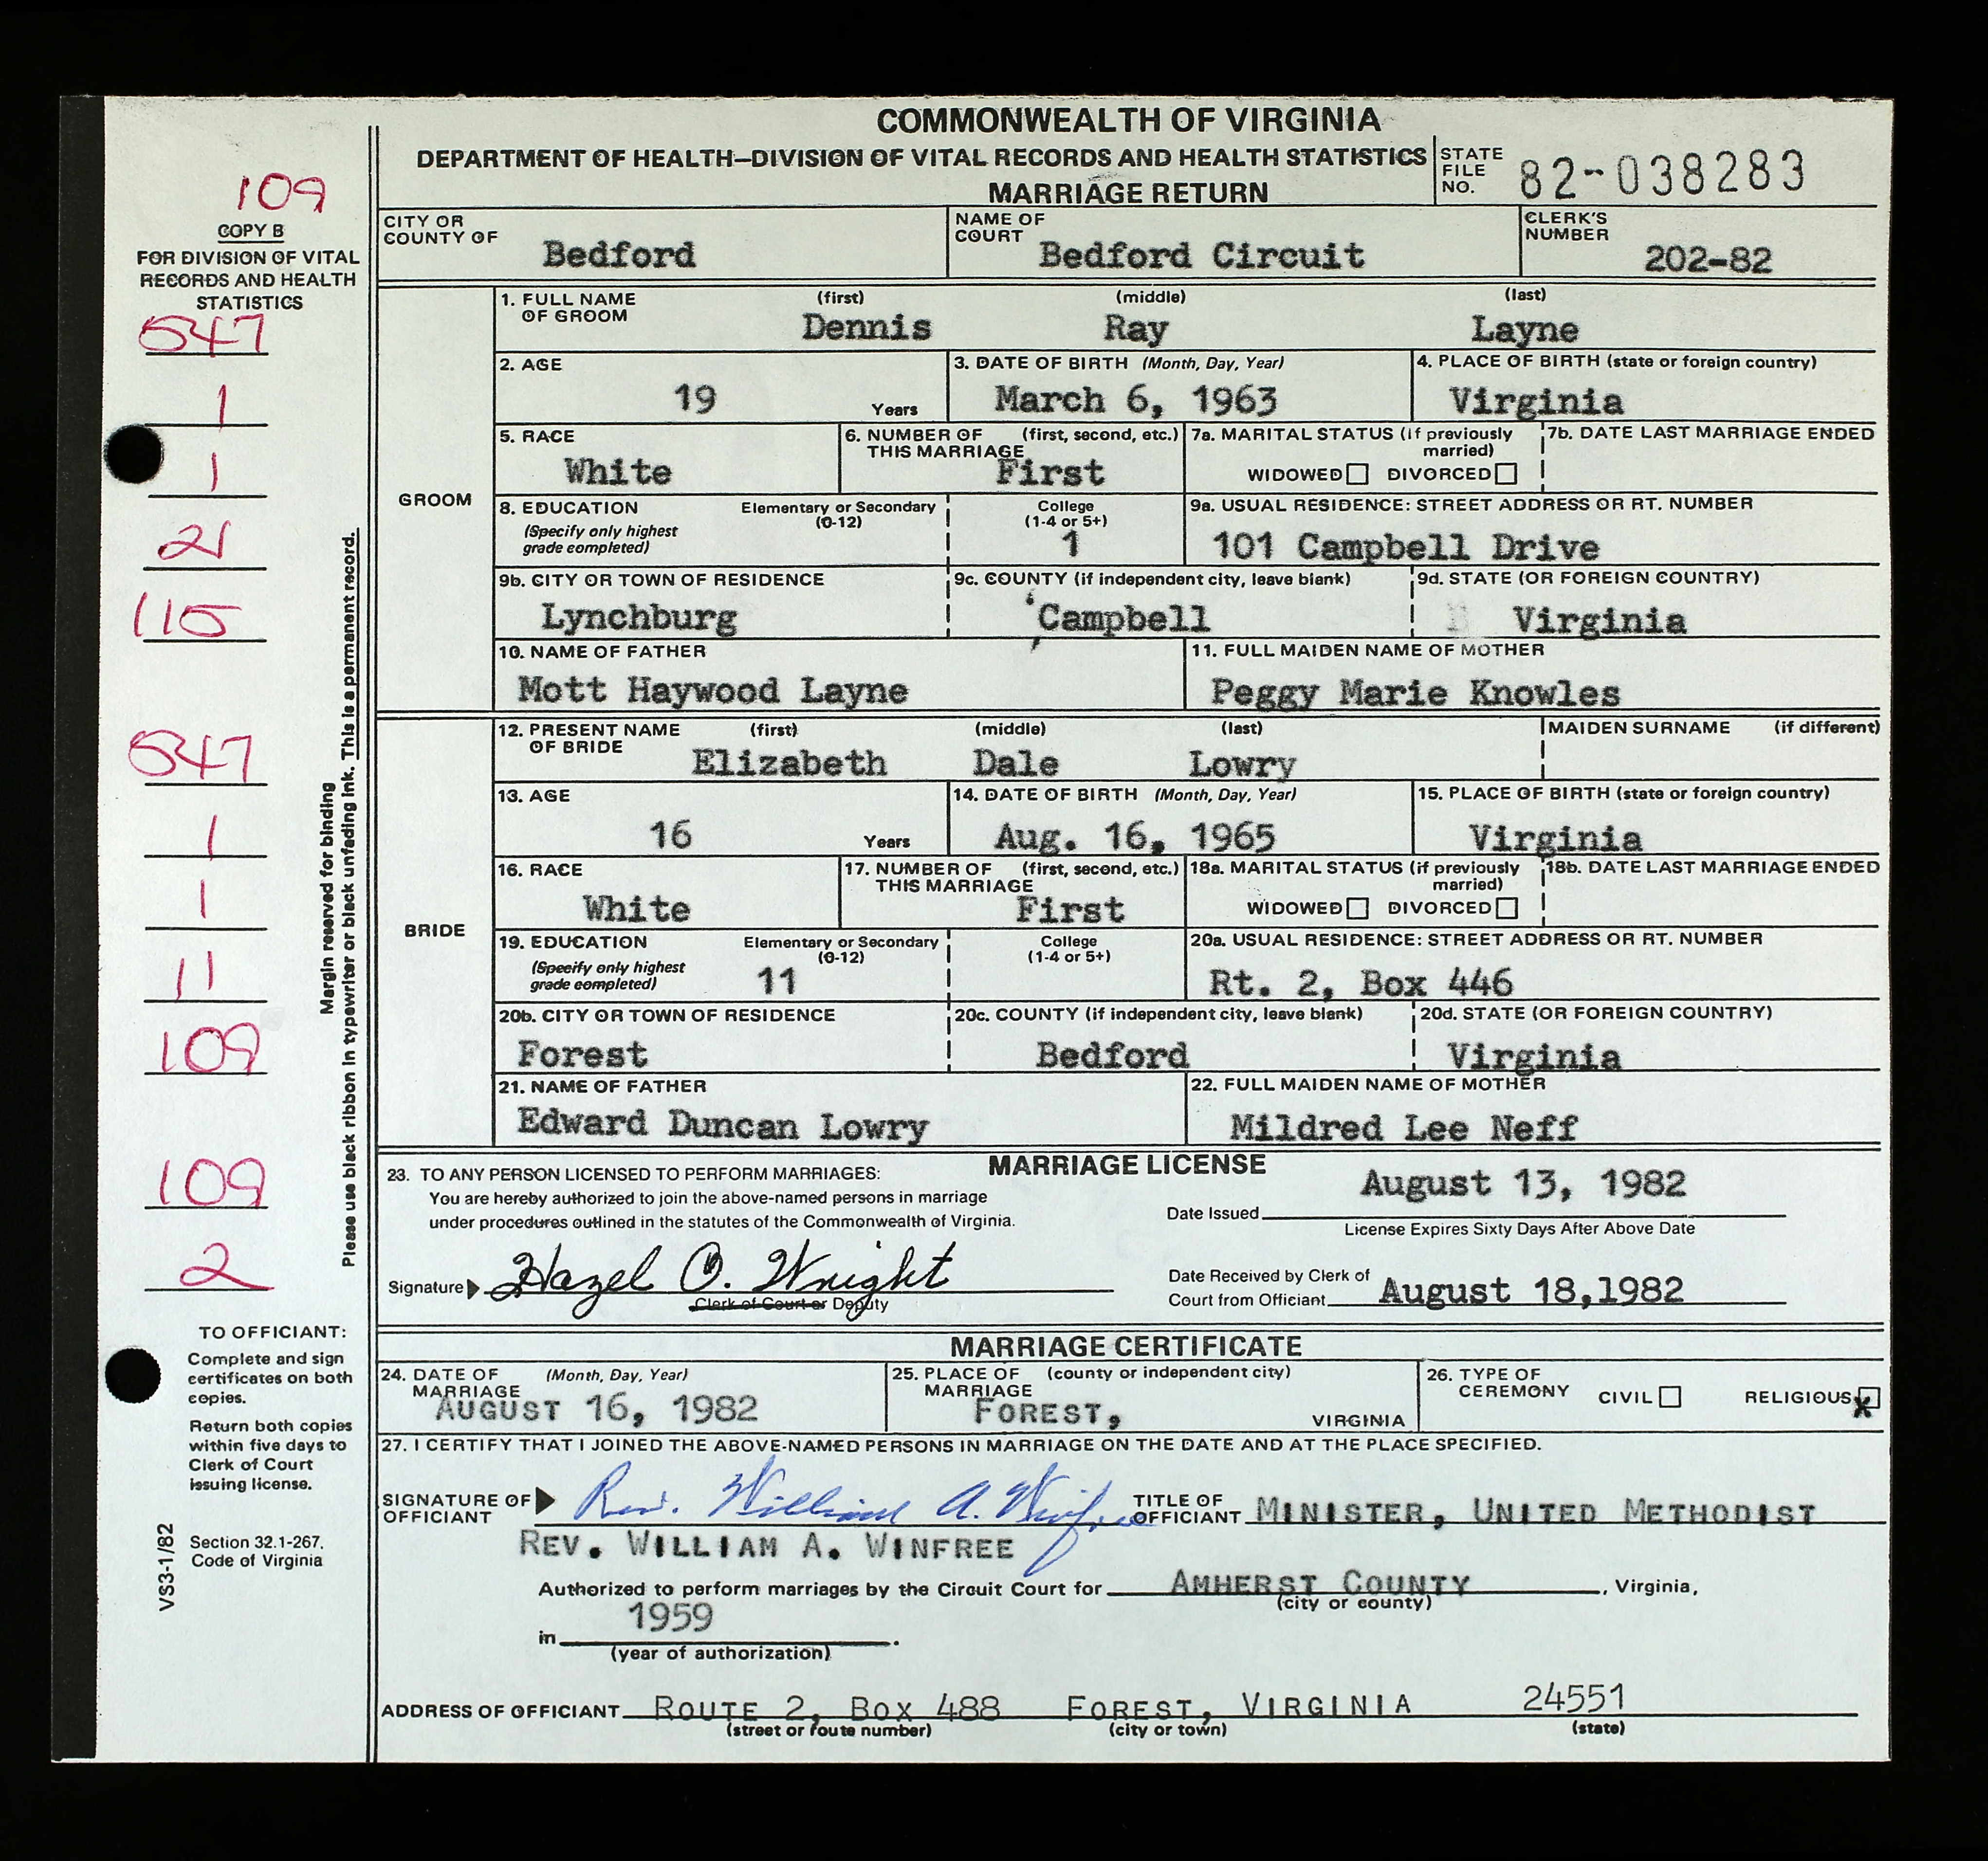 COMMONWEALTH OF VIRGINIA
DEPARTMENT OF HEALTH—DIVISION OF VITAL RECORDS AND HEALTH STATISTICS
MARRIAGE RETURN
STATE FILE NO. 82-038283
109
COPY B
FOR DIVISION OF VITAL
RECORDS AND HEALTH
STATISTICS
547
1
1
21
115
547
1
1
11
109
109
2
Margin reserved for binding
Please use black ribbon in typewriter or black unfading ink. This is a permanent record.
TO OFFICIANT:
Complete and sign
certificates on both
copies.
Return both copies
within five days to
Clerk of Court
issuing license.
Section 32.1-267,
Code of Virginia
VS3-1/82
CITY OR COUNTY OF Bedford
NAME OF COURT Bedford Circuit
CLERK'S NUMBER 202-82
GROOM
1. FULL NAME OF GROOM (first) Dennis (middle) Ray (last) Layne
2. AGE 19 Years
3. DATE OF BIRTH (Month, Day, Year) March 6, 1963
4. PLACE OF BIRTH (state or foreign country) Virginia
5. RACE White
6. NUMBER OF THIS MARRIAGE (first, second, etc.) First
7a. MARITAL STATUS (if previously married) WIDOWED DIVORCED
7b. DATE LAST MARRIAGE ENDED
8. EDUCATION (Specify only highest grade completed) Elementary or Secondary (0-12) College (1-4 or 5+) 1
9a. USUAL RESIDENCE: STREET ADDRESS OR RT. NUMBER 101 Campbell Drive
9b. CITY OR TOWN OF RESIDENCE Lynchburg
9c. COUNTY (if independent city, leave blank) Campbell
9d. STATE (OR FOREIGN COUNTRY) Virginia
10. NAME OF FATHER Mott Haywood Layne
11. FULL MAIDEN NAME OF MOTHER Peggy Marie Knowles
BRIDE
12. PRESENT NAME OF BRIDE (first) Elizabeth (middle) Dale (last) Lowry
MAIDEN SURNAME (if different)
13. AGE 16 Years
14. DATE OF BIRTH (Month, Day, Year) Aug. 16, 1965
15. PLACE OF BIRTH (state or foreign country) Virginia
16. RACE White
17. NUMBER OF THIS MARRIAGE (first, second, etc.) First
18a. MARITAL STATUS (if previously married) WIDOWED DIVORCED
18b. DATE LAST MARRIAGE ENDED
19. EDUCATION (Specify only highest grade completed) Elementary or Secondary (0-12) 11 College (1-4 or 5+)
20a. USUAL RESIDENCE: STREET ADDRESS OR RT. NUMBER Rt. 2, Box 446
20b. CITY OR TOWN OF RESIDENCE Forest
20c. COUNTY (if independent city, leave blank) Bedford
20d. STATE (OR FOREIGN COUNTRY) Virginia
21. NAME OF FATHER Edward Duncan Lowry
22. FULL MAIDEN NAME OF MOTHER Mildred Lee Neff
MARRIAGE LICENSE
23. TO ANY PERSON LICENSED TO PERFORM MARRIAGES:
You are hereby authorized to join the above-named persons in marriage
under procedures outlined in the statutes of the Commonwealth of Virginia.
Date Issued August 13, 1982
License Expires Sixty Days After Above Date
Signature Hazel O. Wright
Clerk of Court or Deputy
Date Received by Clerk of
Court from Officiant August 18,1982
MARRIAGE CERTIFICATE
24. DATE OF MARRIAGE (Month, Day, Year) AUGUST 16, 1982
25. PLACE OF MARRIAGE (county or independent city) FOREST, VIRGINIA
26. TYPE OF CEREMONY CIVIL RELIGIOUS X
27. I CERTIFY THAT I JOINED THE ABOVE-NAMED PERSONS IN MARRIAGE ON THE DATE AND AT THE PLACE SPECIFIED.
SIGNATURE OF OFFICIANT Rev. William A. Winfree
TITLE OF OFFICIANT MINISTER, UNITED METHODIST
REV. WILLIAM A. WINFREE
Authorized to perform marriages by the Circuit Court for AMHERST COUNTY, Virginia,
(city or county)
in 1959.
(year of authorization)
ADDRESS OF OFFICIANT ROUTE 2, BOX 488 FOREST, VIRGINIA 24551
(street or route number) (city or town) (state)